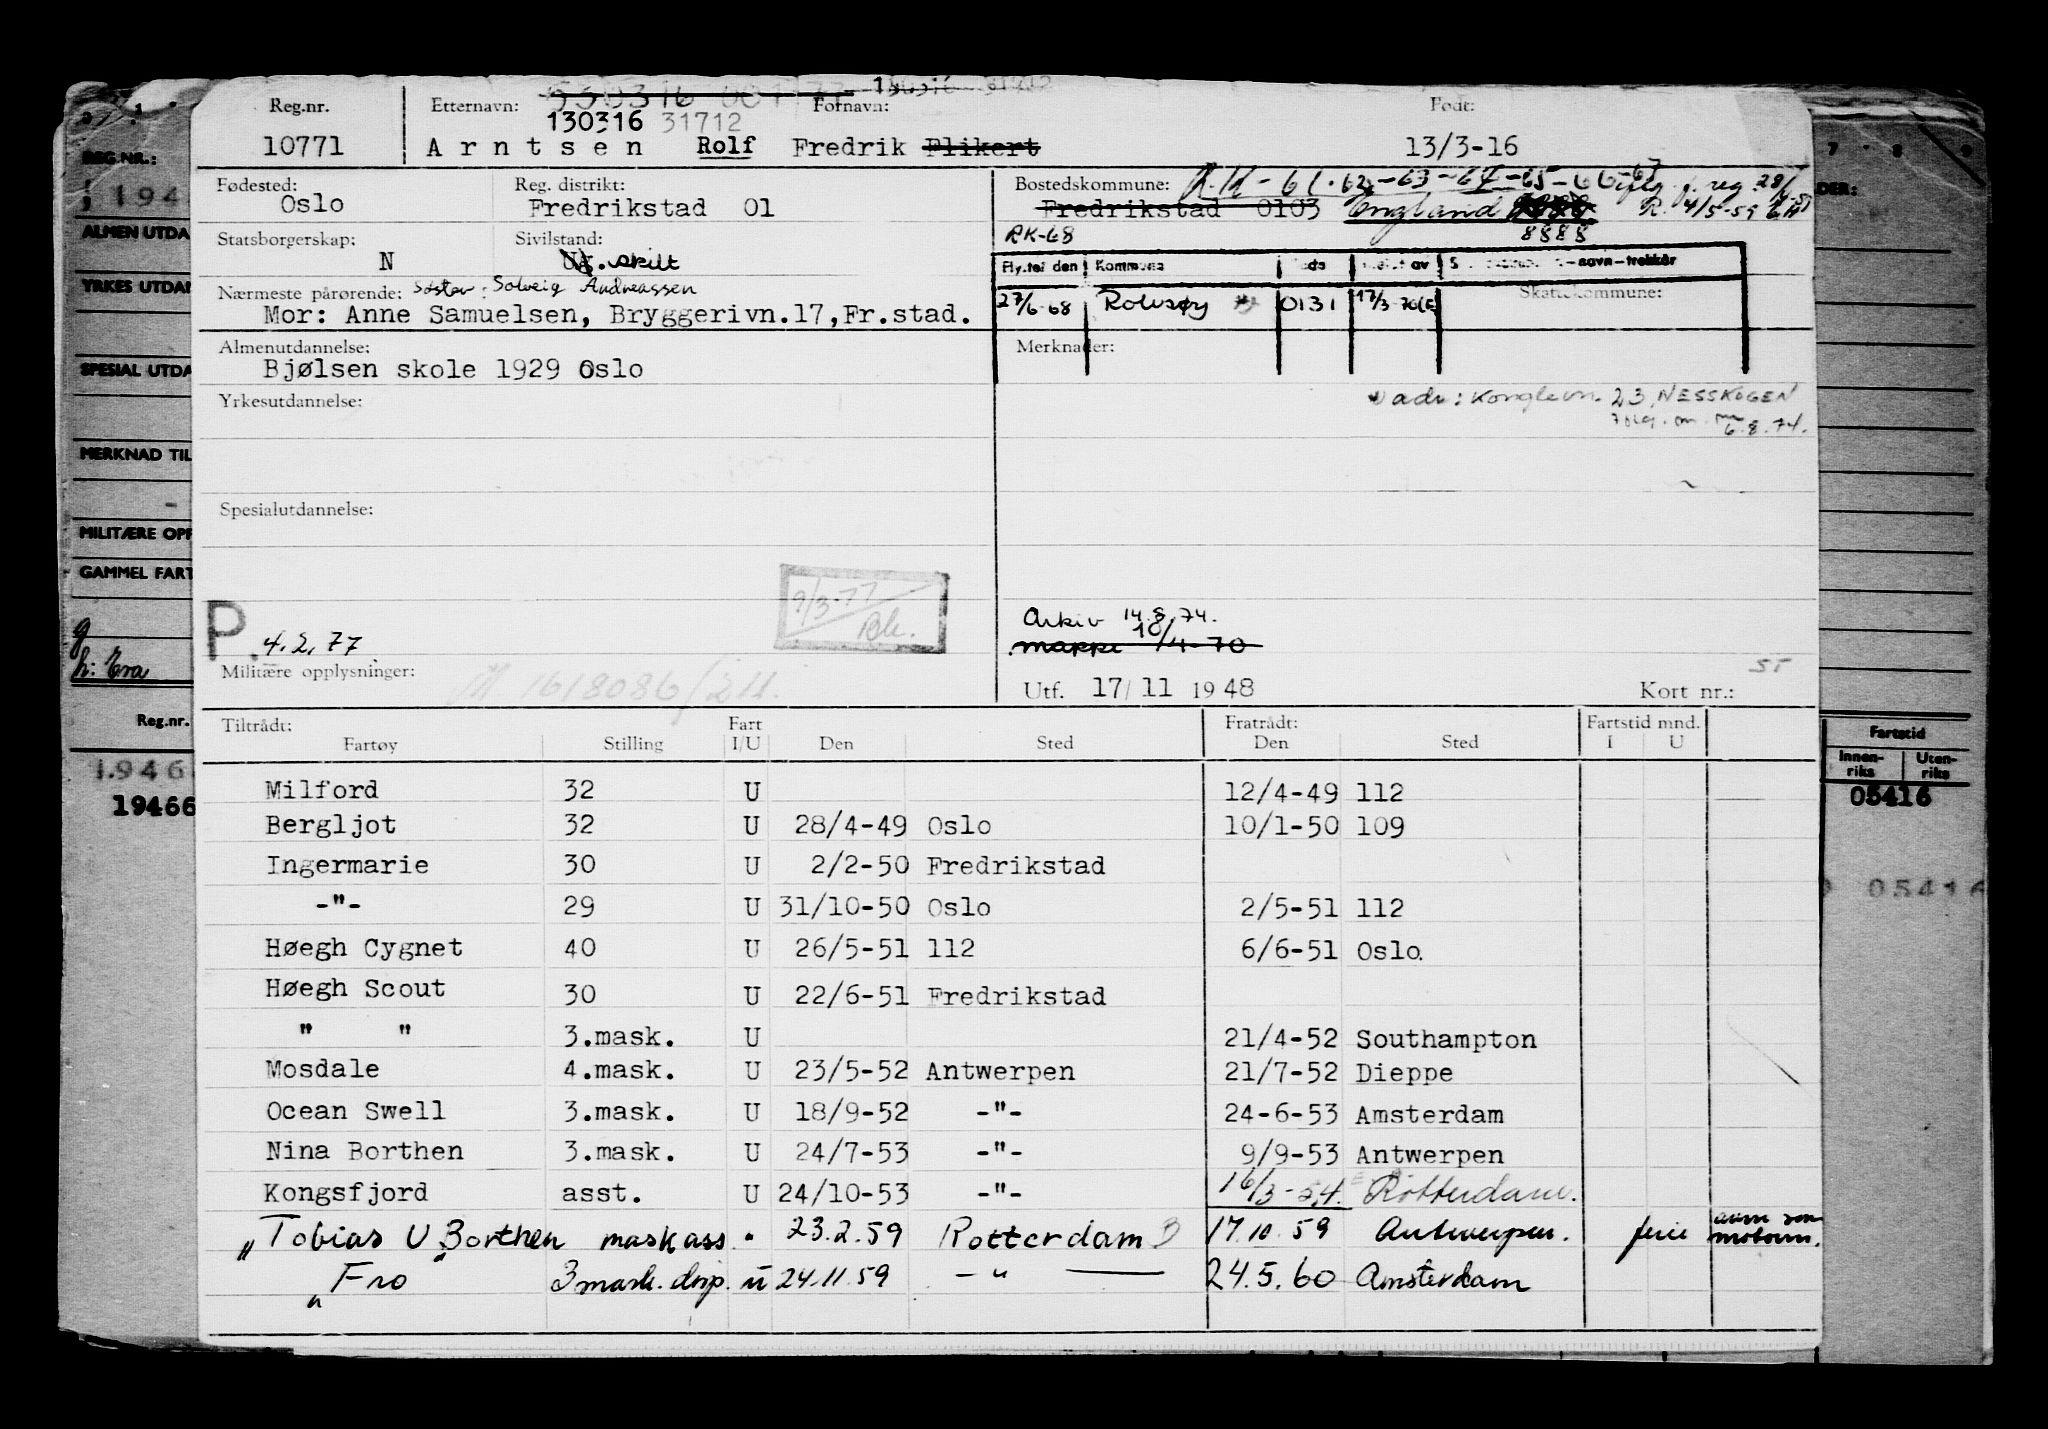 Reg.nr. Etternavn: Fornavn: Født:
130316 31712
10771 Arntsen Rolf Fredrik Flikert 13/3-16
Fødested: Reg. distrikt: Bostedskommune: R.K - 61-62-63-64-65-66-67
Oslo Fredrikstad 01 Fredrikstad 0103 England R. 4/5-59
8888
Statsborgerskap: Sivilstand: RK-68
N Ug. skilt
Nærmeste pårørende: Søster: Solveig Andreassen
Mor: Anne Samuelsen, Bryggerivn.17,Fr.stad.
Fly.tel den Kommune
-navn-trekkår
Skattekommune:
27/6-68 Rolvsøy 0131 17/3-70
Almenutdannelse: Merknader:
Bjølsen skole 1929 Oslo
Yrkesutdannelse:
adr: Konglevn. 23, NESSKOGEN
6.8.74.
Spesialutdannelse:
9/3-77
Bk.
P. 4.2.77
Arkiv 14.8.74.
mappe 10/4-70
Militære opplysninger:
Utf. 17/11 1948 Kort nr.:
ST
Tiltrådt: Fart Fratrådt: Fartstid mnd.
Fartøy Stilling I/U Den Sted Den Sted I U
Milford 32 U 12/4-49 112
Bergljot 32 U 28/4-49 Oslo 10/1-50 109
Ingermarie 30 U 2/2-50 Fredrikstad
-"- 29 U 31/10-50 Oslo 2/5-51 112
Høegh Cygnet 40 U 26/5-51 112 6/6-51 Oslo.
Høegh Scout 30 U 22/6-51 Fredrikstad
" " 3.mask. U 21/4-52 Southampton
Mosdale 4.mask. U 23/5-52 Antwerpen 21/7-52 Dieppe
Ocean Swell 3.mask. U 18/9-52 -"- 24-6-53 Amsterdam
Nina Borthen 3.mask. U 24/7-53 -"- 9/9-53 Antwerpen
Kongsfjord asst. U 24/10-53 -"- 16/3-54. Rotterdam.
"Tobias U Borthen" maskass. " 23.2.59 Rotterdam 17.10.59 Antwerpen. ferie
" Fro 3 mask. disp. U 24.11.59 - " - 24.5.60 Amsterdam
REG.NR.:
ALMEN UTDA
YRKES UTDAN
SPESIAL UTDA
MERKNAD TIL
MILITÆRE OPP
GAMMEL FART
h: Eva
Reg.nr.
1.946
19466
7 8 9
DER:
Fartstid
Innen-riks Uten-riks
05416
05416